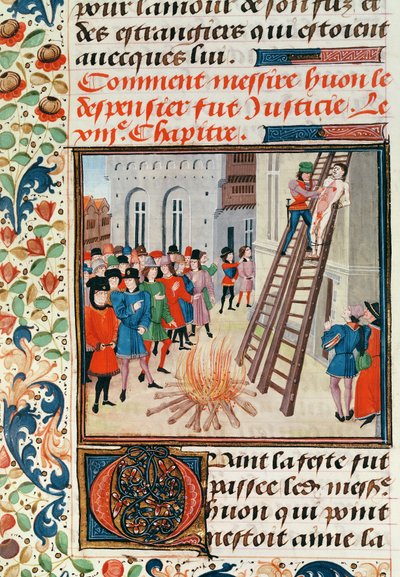 pour lamour de son filz et
des estrangiers qui estoient
auecques lui.
Comment messire huon le
despensier fut Justicie. Le
viiie. Chapitre.
Quant la feste fut
passee led. messe
huon qui point
nestoit aime la